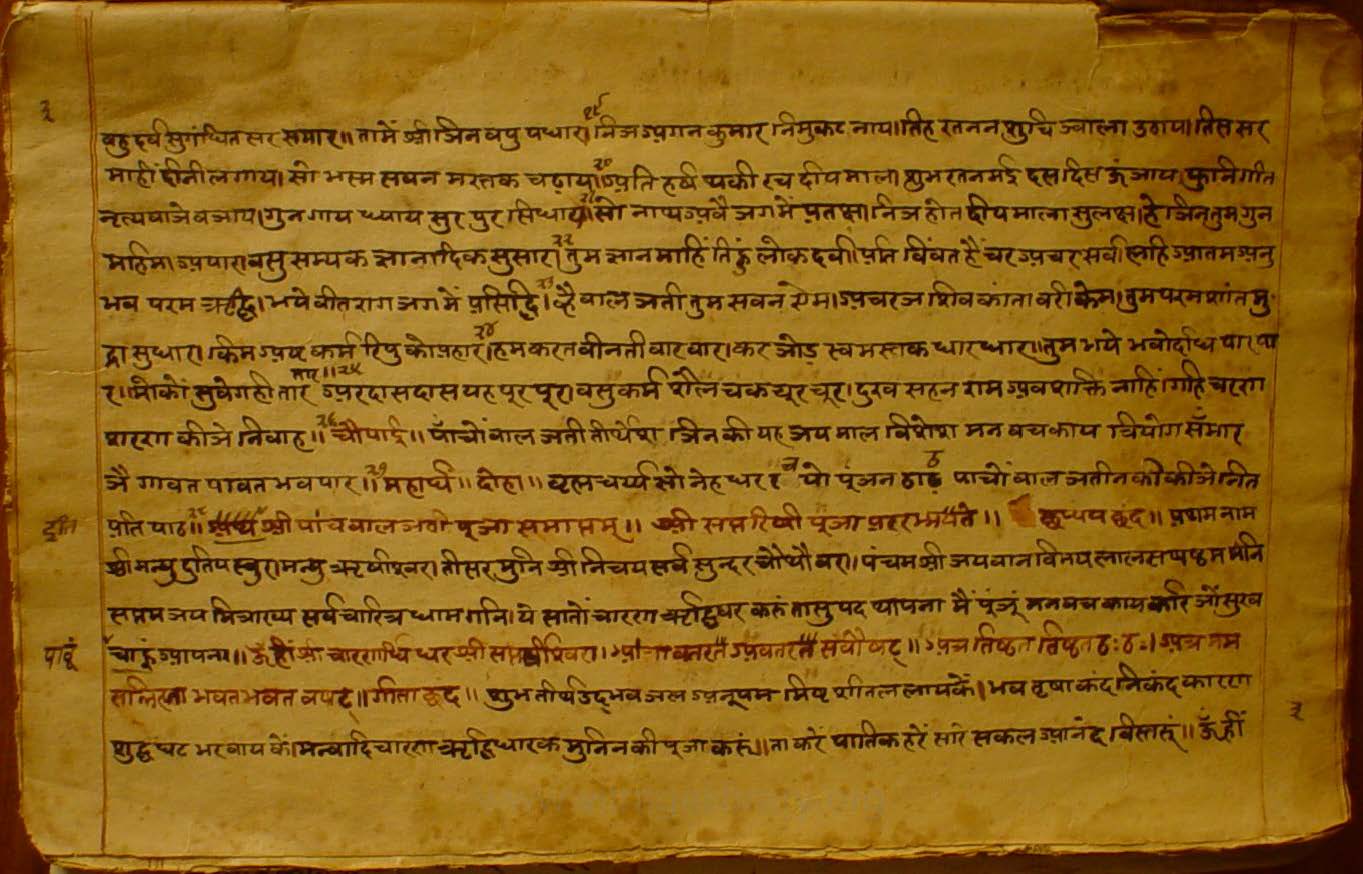 ३
बहु दर्व सुगंधित सर समार॥ तामें श्री जिन वपु पधार।१९ निज अगन कुमार निमुकट नाय। तिह रतनन शुचि ज्वाला उठाय। तिस सर
माहीं दीनी लगाय। सो भस्म सवन मस्तक चढ़ाय।२० अति हर्ष थकी रच दीप माला। शुभ रतन मई दस दिस ऊं जाय। फुनि गीत
नृत्य बाजे बजाय। गुन गाय ध्याय सुर पुर सिधाय।२१ सो नाथ अबै जग में प्रतक्ष। निज होत दीप माला सुलक्ष। हे जिन तुम गुन
महिमा अपार। वसु सम्यक ज्ञानादिक सुसार।२२ तुम ज्ञान माहिं तिहुं लोक दर्वी। प्रति बिंबत हैं चर अचर सर्वी। लहि आतम अनु
भव परम ऋद्धि। भये वीतराग जग में प्रसिद्धि।२३ ह्वै बाल जती तुम सबन येम। अचरज शिव कांता वरी केम। तुम परम शांत मु
द्रा सुधार। किम अष्ट कर्म रिपु को प्रहार।२४ हम करत वीनती बार बार। कर जोड़ स्व मस्तक धार धार। तुम भये भवोदधि पार पा
र। मोकों सुवेगही तार तार॥२५ अरदास दास यह पूर पूर। वसु कर्म शैल चक चूर चूर। दुख सहन राम अब शक्ति नाहिं। गहि चरण
शरण कीजे निवाह॥२६ चौपाई॥ पाँचों बाल जती तीर्थेश। जिन की यह जय माल विशेश। मन वच काय त्रियोग सँमार
जै गावत पावत भव पार॥२७ महार्घ॥ दोहा॥ ब्रह्म चर्य्य सो नेह धर रचयो पूंजन ठाठ पाचों बाल जतीन को कीजे नित
प्रति पाठ॥२८ श्री पांच बाल जती पूजा समाप्तम्॥ श्री सप्तरिषी पूजा प्रारम्भ्यते॥ छप्पय छंद॥ प्रथम नाम
श्री मन्यु दुतिय स्वुरामन्यु ऋषीश्वर। तीसर मुनि श्री निचय सर्व सुन्दर चौथौ वर। पंचम श्री जयवान विनय लालस षष्ठम भनि
सप्तम जय मित्राख्य सर्व चारित्र धाम गनि। ये सातों चारण ऋद्धि धर करुं तासु पद थापना मैं पूंजूं मन वच काय करि जों सुख
चाहुं आपना॥ ॐ ह्रीं श्री चारणर्धि धर श्री सप्तर्षीश्वर। अत्रा वतरत अवतरत संवौषट्॥ अत्र तिष्ठत तिष्ठत ठः ठः। अत्र मम
सन्निहिता भवत भवत वषट्॥ गीता छंद॥ शुभ तीर्थ उद्भव जल अनूपम मिष्ट शीतल लायकें। भव तृषा कंद निकंद कारण
शुद्ध घट भरवाय कें। मन्वादि चारण ऋद्धि धारक मुनिन की पूजा करूं। ता करें पातिक हरें सारे सकल आनंद विसारूं॥ ॐ ह्रीं
३